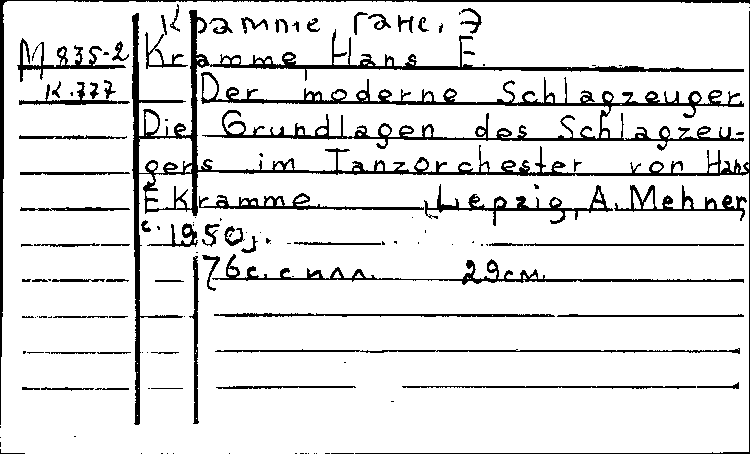 Крамме, Ганс, Э
М 835-2 Kramme Hans E.
К.777 Der moderne Schlagzeuger
Die Grundlagen des Schlagzeu-
gers im Tanzorchester von Hans
E Kramme. Leipzig, A. Mehner,
c. 1950,.
76с. с илл. 29см.